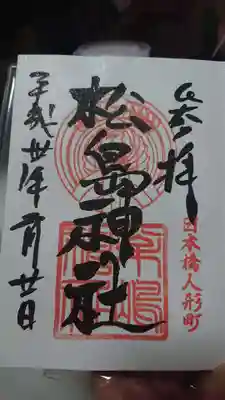 奉拝
日本橋人形町
松島神社
平成卅年一月廿日